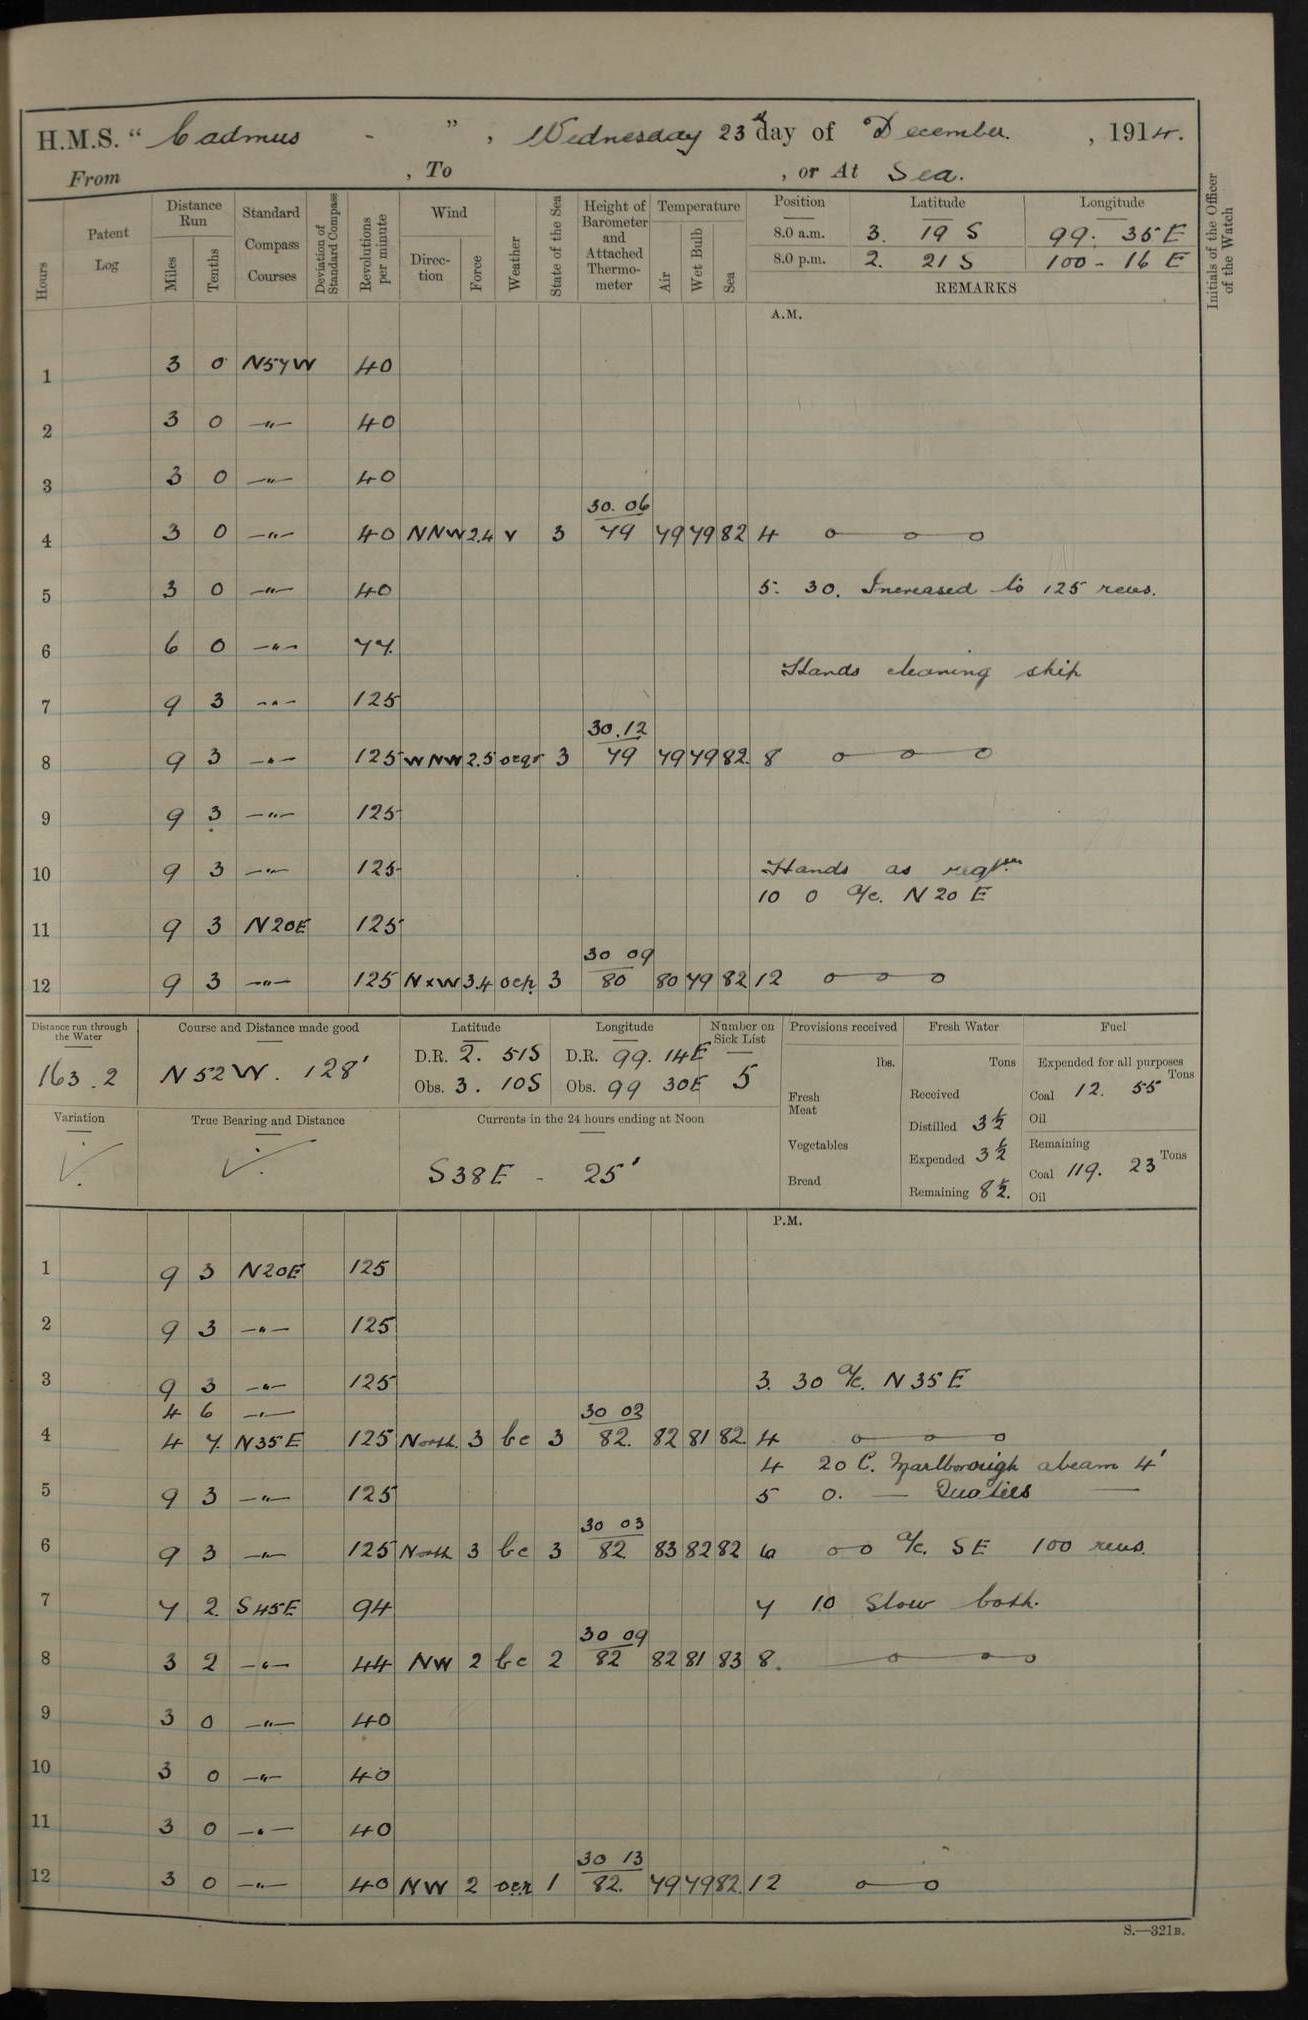 H.M.S. “ Cadmus - ” , Wednesday 23rd day of December. , 1914.
From , To , or At Sea.
Hours
Patent Log
Distance Run
Miles
Tenths
Standard Compass Courses
Deviation of Standard Compass
Revolutions per minute
Wind
Direction
Force
Weather
State of the Sea
Height of Barometer and Attached Thermometer
Temperature
Air
Wet Bulb
Sea
Position Latitude Longitude
8.0 a.m. 3. 19 S 99: 35 E
8.0 p.m. 2. 21 S 100 - 16 E
REMARKS
Initials of the Officer of the Watch
A.M.
1 3 0 N57W 40
2 3 0 —"— 40
3 3 0 —"— 40
30. 06
4 3 0 —"— 40 NNW 2.4 v 3 79 79 79 82 4 o—o—o
5 3 0 —"— 40 5. 30. Increased to 125 revs.
6 6 0 —"— 77.
Hands cleaning ship
7 9 3 —"— 125
30.12
8 9 3 —"— 125 WNW 2.5 ocqr 3 79 79 79 82. 8 o—o—o
9 9 3 —"— 125
10 9 3 —"— 125 Hands as reqr.
10 0 a/c. N 20 E
11 9 3 N20E 125
30 09
12 9 3 —"— 125 NxW 3.4 ocp. 3 80 80 79 82 12 o—o—o
Distance run through the Water
163.2
Course and Distance made good
N 52 W. 128'
Latitude
D.R. 2. 51S
Obs. 3. 10S
Longitude
D.R. 99. 14E
Obs. 99 30E
Number on Sick List
5
Provisions received
lbs.
Fresh Meat
Vegetables
Bread
Fresh Water
Tons
Received
Distilled 3½
Expended 3½
Remaining 8½.
Fuel
Expended for all purposes
Tons
Coal 12. 55
Oil
Remaining
Tons
Coal 119. 23
Oil
Variation
True Bearing and Distance
Currents in the 24 hours ending at Noon
S38E - 25'
P.M.
1 9 3 N20E 125
2 9 3 —"— 125
3 9 3 —"— 125 3. 30 a/c. N 35 E
4 6 —"— 30 03
4 4 7. N35E 125 North. 3 bc 3 82. 82 81 82. 4 o—o—o
4 20 C. Marlborough abeam 4'
5 9 3 —"— 125 5 0. — Duaties —
30 03
6 9 3 —"— 125 North 3 bc 3 82 83 82 82 6 o o a/c. SE 100 revs.
7 7 2. S45E 94 7 10 Slow both.
30 09
8 3 2 —"— 44 NW 2 bc 2 82 82 81 83 8. —o—o—o
9 3 0 —"— 40
10 3 0 —"— 40
11 3 0 —"— 40
30 13
12 3 0 —"— 40 NW 2 ocr 1 82. 79 79 82. 12 o—o
S.—321B.